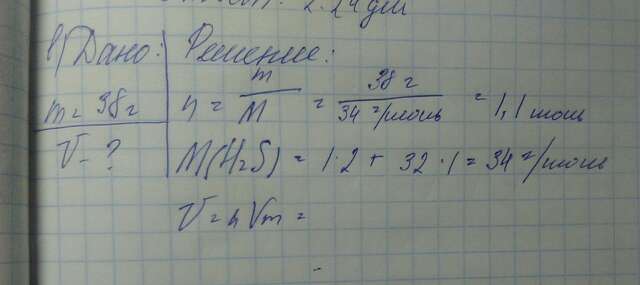 2.24 дм
1) Дано: Решение:
m = 38 г n = m/M = 38 г/34 г/моль = 1,1 моль
V - ? M(H₂S) = 1·2 + 32·1 = 34 г/моль
V = n Vm =